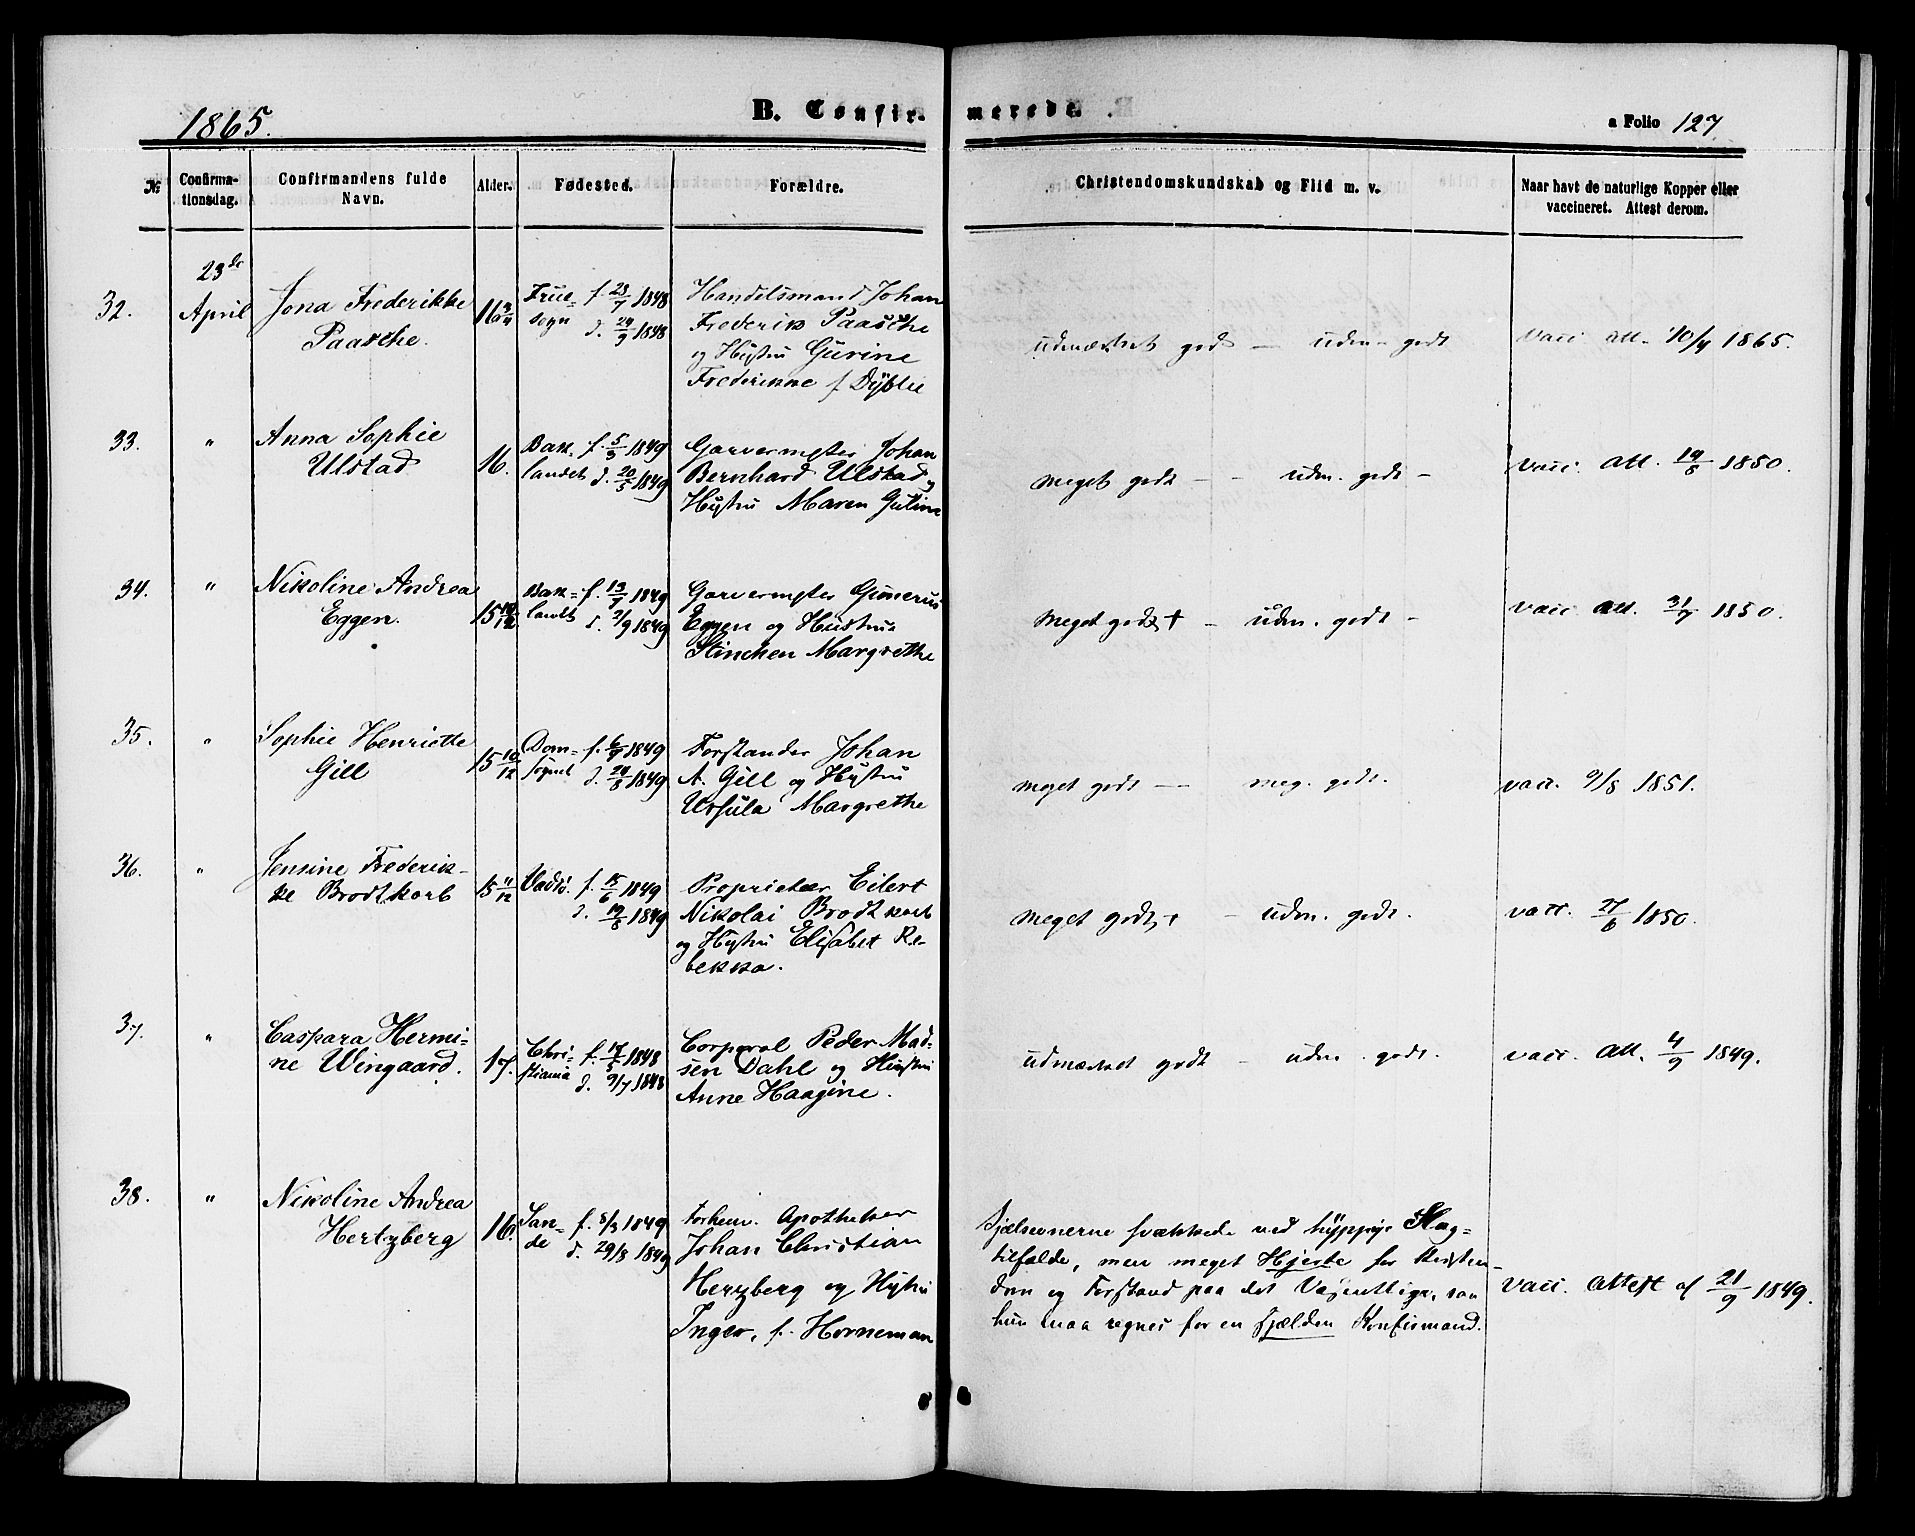 1865.
B. Confir-
merede.
a Folio 127.
№
Confirma-
tionsdag.
Confirmandens fulde
Navn.
Alder.
Fødested.
Forældre.
Christendomskundskab og Flid m. v.
Naar havt de naturlige Kopper eller
vaccineret. Attest derom.
32.
23de
April
Jona Frederikke
Paasche.
16 3/4
Frue= f. 23/7 1848
sogn d. 24/9 1848
Handelsmand Johan
Frederik Paasche
og Hustru Gurine
Frederikke f. Dyblie
udmærket godt — udm - godt
vacc. att. 10/4 1865.
33.
"
Anna Sophie
Ulstad
16.
Bak= f. 5/3 1849
landet d. 20/5 1849
Garvermester Johan
Bernhard Ulstad og
Hustru Maren Guline
meget godt - - udm. godt -
vacc. att. 19/8 1850.
34.
"
Nikoline Andrea
Eggen.
15 10/12
Bak= f. 13/7 1849
landet d. 2/9 1849
Garvermester Gunerius
Eggen og Hustru
Stinchen Margrethe
Meget godt + - udm. godt -
vacc. att. 31/7 1850.
35.
"
Sophie Henriette
Gill
15 10/12
Dom= f. 6/7 1849
sognet d. 24/8 1849
Forstander Johan
A. Gill og Hustru
Ursula Margrethe
meget godt — meg. godt.
vacc. 9/8 1851.
36.
"
Jensine Frederik-
ke Brodtkorb
15 11/12
Vadsö. f. 15/6 1849
d. 19/8 1849
Proprietær Eilert
Nikolai Brodtkorb
og Hustru Elisabet Re-
bekka.
meget godt + - udm. godt.
vacc. 27/6 1850.
37.
"
Caspara Hermi=
ne Wingaard.
17.
Chri- f. 14/5 1848
stiania d. 9/7 1848
Corporal Peder Mad-
sen Dahl og Hustru
Anne Haagine.
udmærket godt - udm. godt.
vacc. att. 4/9 1849.
38.
"
Nikoline Andrea
Hertzberg
16.
San= f. 5/3 1849
de d. 29/8 1849
forhenv. Apotheker
Johan Christian
Hertzberg og Hustru
Inger, f. Horneman
Sjælsevnerne svækkede ved hyppige Slag-
tilfælde, men meget Hjerte for Kristen-
dom og Forstand paa det Væsentlige, saa
hun maa regnes for en sjælden Konfirmand.
vacc. attest af 21/9 1849.